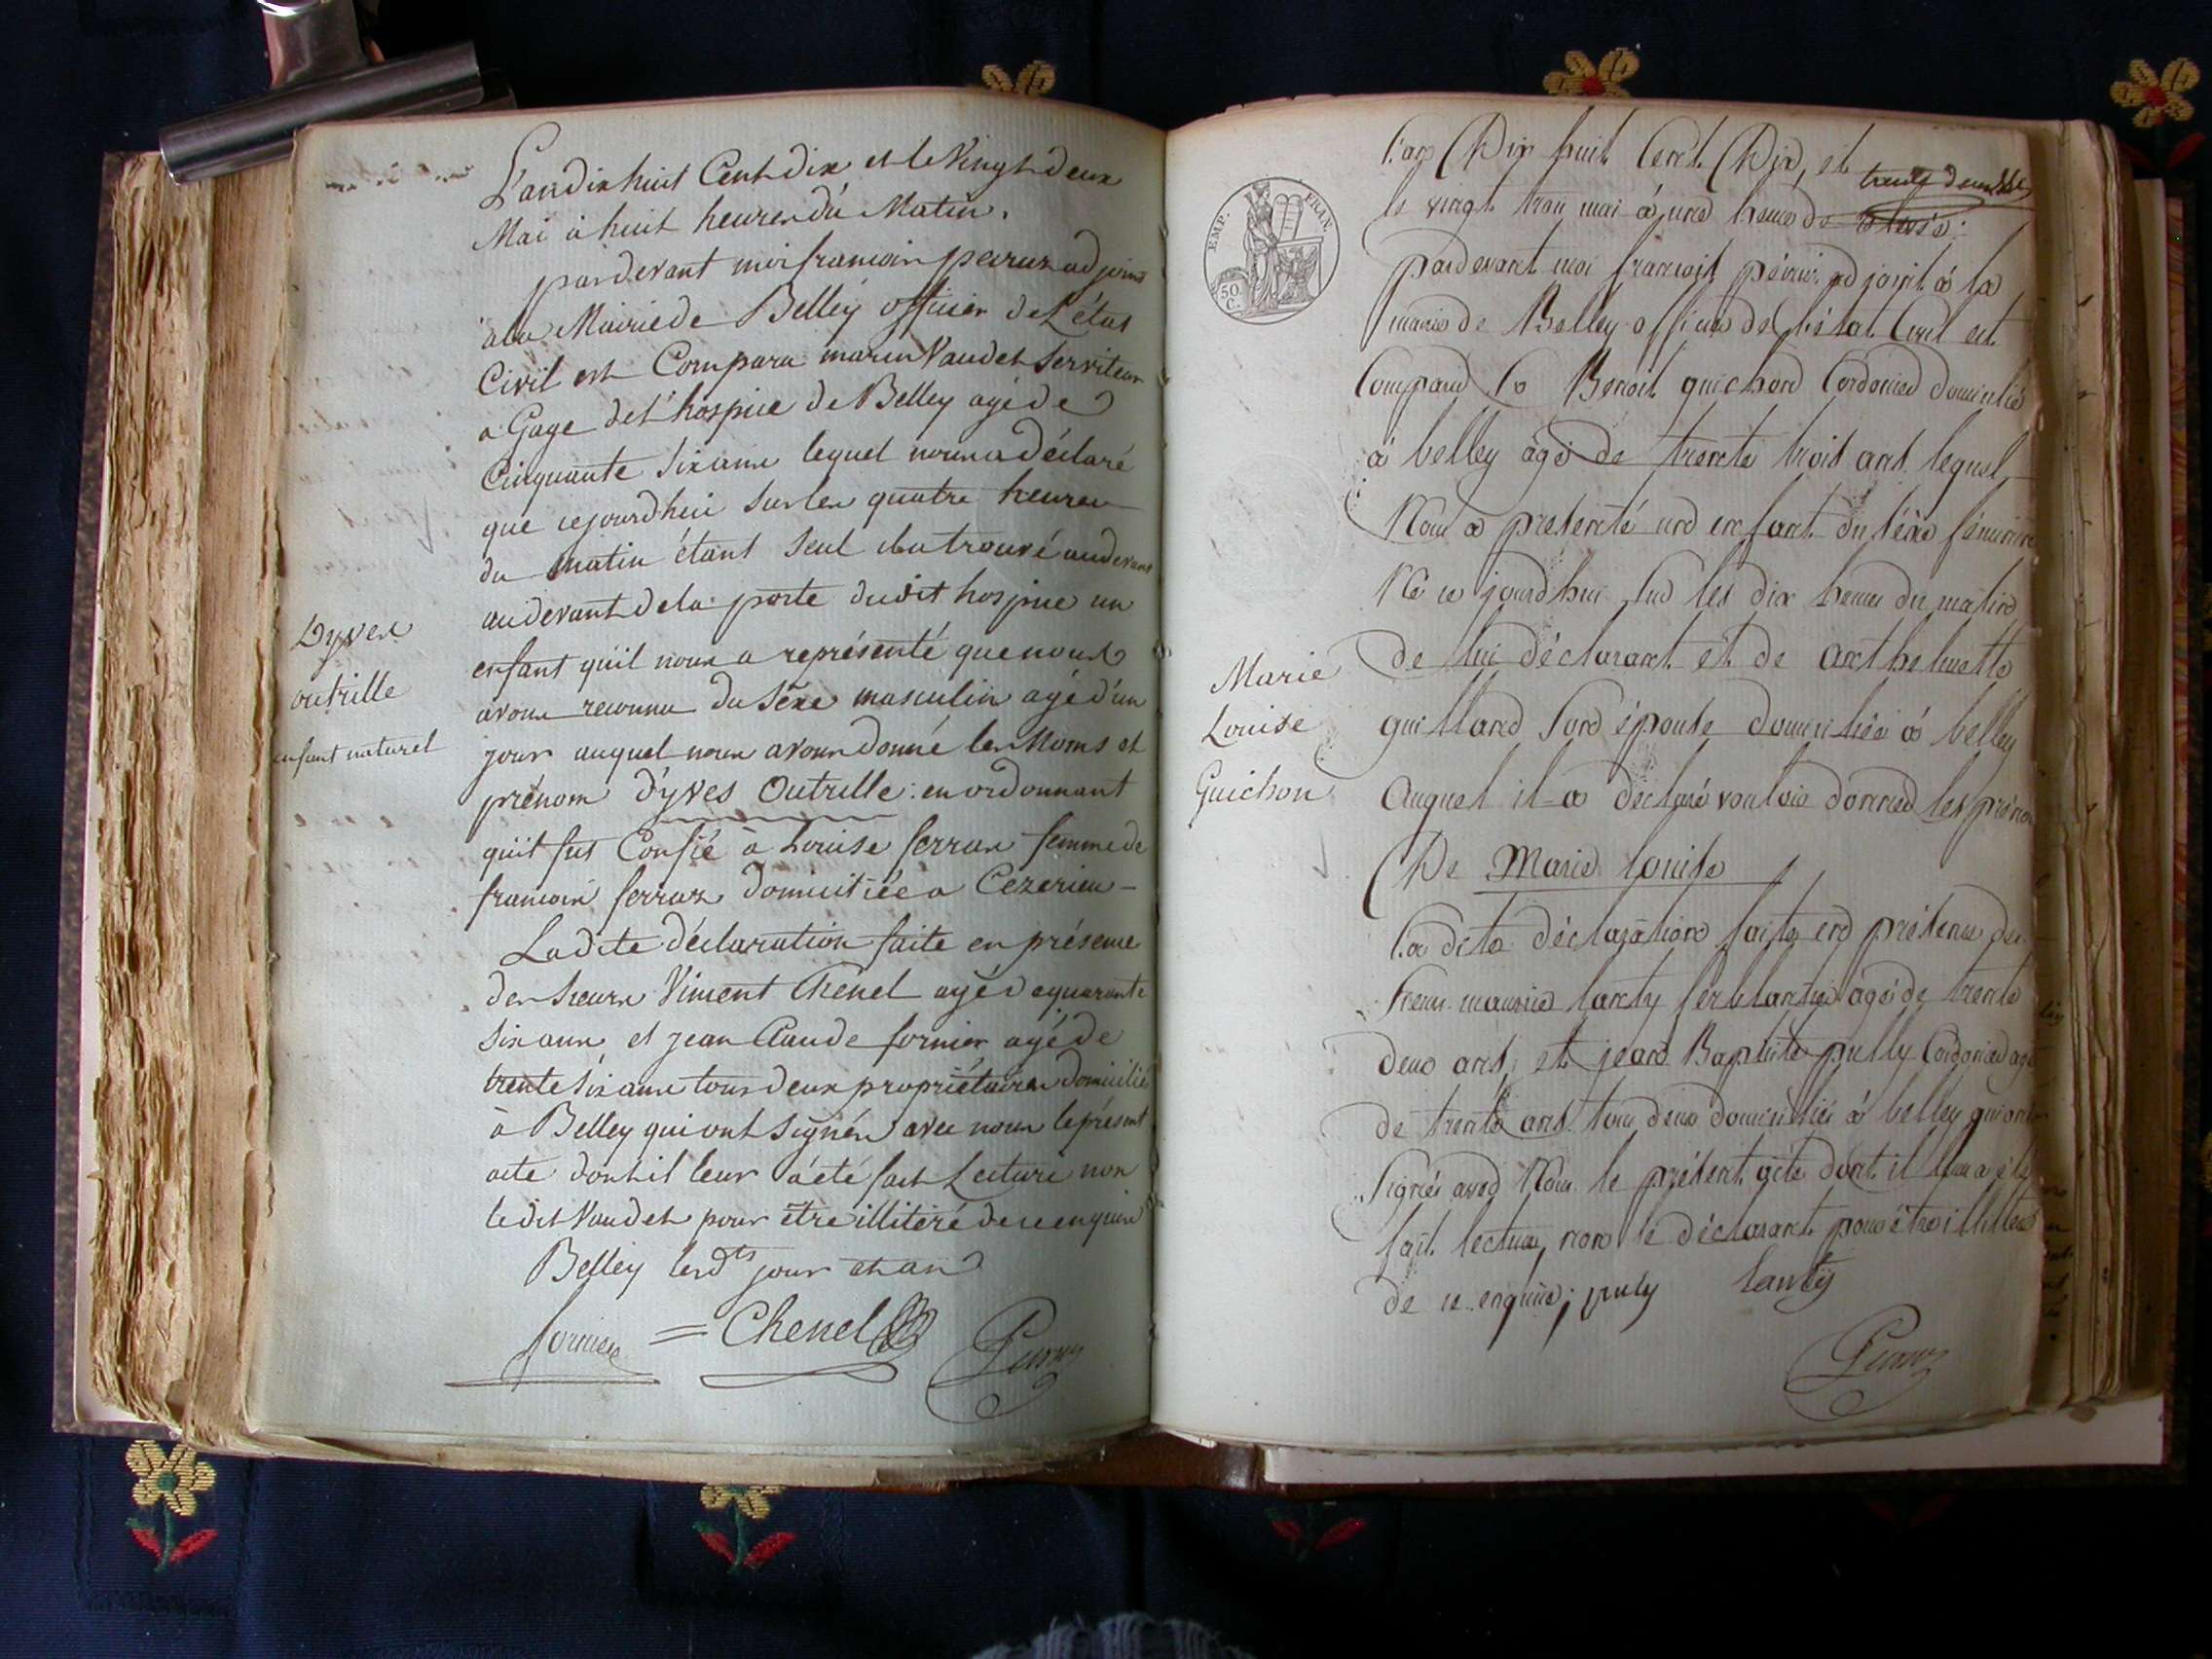 L'an dix huit Cent dix et le Vingt deux
Mai à huit heures du Matin.
pardevant moi francois peiruz adjoint
a la Mairie de Belley officier de L'état
Civil est Comparu marin Vaudet Serviteur
a Gage de l'hospice de Belley agé de
Cinquante six ans lequel nous a déclaré
que cejourdhui sur les quatre heures
du matin étant seul il a trouvé audevant
audevant de la porte dudit hospice un
enfant qu'il nous a représenté que nous
avons reconnu du séxe masculin agé d'un
jour auquel nous avons donné les Noms et
prénom d'yves Outrille: en ordonnant
qu'il fut Confié à Louise ferraz femme de
francois ferraz domicitiée a Cezerieu -
La dite déclaration faite en présence
des sieurs Vincent Chenel agé de quarante
six ans et jean Claude fornier agé de
trente six ans tous deux propriétaires domicilié
à Belley qui ont signés avec nous le présent
acte dont il leur a été fait Lecture non
le dit Vaudet pour être illitéré de ce enquire
Belley les dts jour et an
fornier = Chenel
Peiruz
Dyves
outrille
enfant naturel
EMP. FRAN.
50 C.
L'an Dix huit Cent Dix, et
le vingt trois mai à une heure de
pardevant moi francois péiruz adjoint à la
mairie de Belley officier de l'état Civil est
Comparu Benoit guichon Cordonier domicilié
à belley agé de trente trois ans lequel
Nous a présenté un enfant du séxe féminin
Né ce jourdhui sur les dix heures du matin
de lui déclarant et de anthelmette
guilland son épouse domiciliée à belley
Auquel il a déclaré vouloir donner les prénoms
De Marie Louise
La dite déclaration faite en présence des
sieurs maurice lanty ferblantier agé de trente
deux ans, et jean Baptiste pully Cordonier agé
de trente ans tous deux domiciliés à belley qui ont
signés avec Nous le présent acte dont il leur a été
fait lecture, non le déclarant pour être illitéré
de ce enquire; puly lanty
Peiruz
Marie
Louise
Guichon